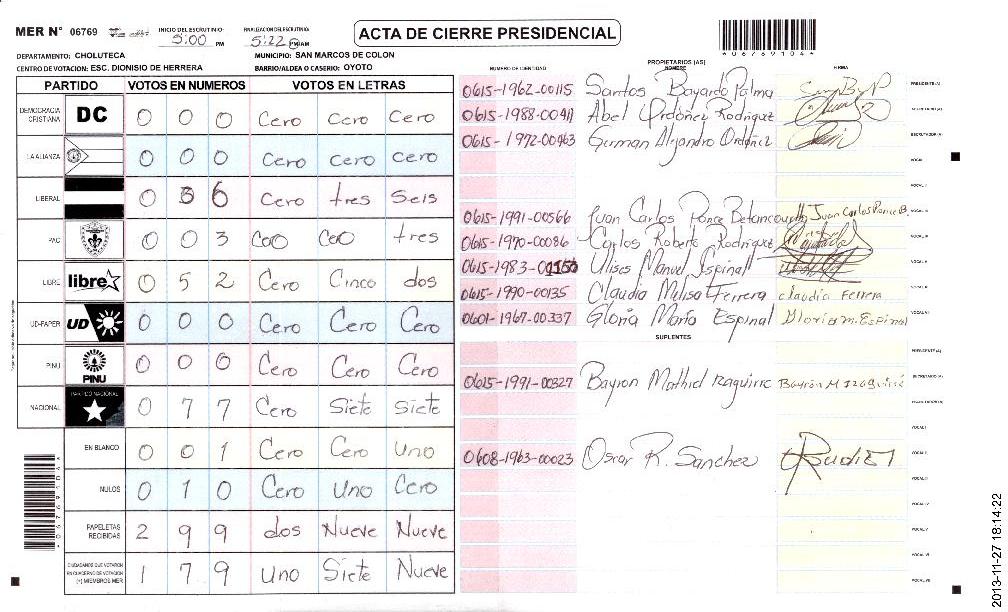 MER N° 06769 INICIO DEL ESCRUTINIO: 5:00 PM FINALIZACION DEL ESCRUTINIO: 5:22 PM/AM
ACTA DE CIERRE PRESIDENCIAL
*06769104*
DEPARTAMENTO: CHOLUTECA MUNICIPIO: SAN MARCOS DE COLON
CENTRO DE VOTACION: ESC. DIONISIO DE HERRERA BARRIO/ALDEA O CASERIO: OYOTO
PARTIDO VOTOS EN NUMEROS VOTOS EN LETRAS
DEMOCRACIA CRISTIANA DC 0 0 0 Cero Cero Cero
LA ALIANZA 0 0 0 Cero Cero Cero
LIBERAL 0 3 6 Cero tres Seis
PAC 0 0 3 Cero Cero tres
LIBRE libre 0 5 2 Cero Cinco dos
UD-FAPER UD 0 0 0 Cero Cero Cero
PINU PINU 0 0 0 Cero Cero Cero
NACIONAL PARTIDO NACIONAL 0 7 7 Cero Siete Siete
EN BLANCO 0 0 1 Cero Cero Uno
NULOS 0 1 0 Cero Uno Cero
PAPELETAS RECIBIDAS 2 9 9 dos Nueve Nueve
CIUDADANOS QUE VOTARON EN CUADERNO DE VOTACION (+) MIEMBROS MER 1 7 9 Uno Siete Nueve
PROPIETARIOS (AS)
NUMERO DE IDENTIDAD NOMBRE FIRMA
0615-1962-00115 Santos Bayardo Palma PRESIDENTE (A)
0615-1988-00411 Abel Ordoñez Rodriguez SECRETARIO (A)
0615-1972-00463 German Aljandro Ordoñez ESCRUTADOR (A)
VOCAL I
VOCAL II
0615-1991-00566 Juan Carlos Ponce Betancourth Juan Carlos Ponce B. VOCAL III
0615-1970-00086 Carlos Roberto Rodriguez VOCAL IV
0615-1983-0 Ulises Manuel Espinal VOCAL V
0615-1990-00135 Claudia Melisa Ferrera Claudia Ferrera VOCAL VI
0601-1967-00337 Gloria Maria Espinal Gloria M. Espinal VOCAL VII
SUPLENTES
PRESIDENTE (A)
0615-1991-00327 Bayron Mathiel Izaguirre Bayron M Izaguirre SECRETARIO (A)
ESCRUTADOR (A)
VOCAL I
0608-1963-00023 Oscar R. Sanchez VOCAL II
VOCAL III
VOCAL IV
VOCAL V
VOCAL VI
VOCAL VII
2013-11-27 18:14:22